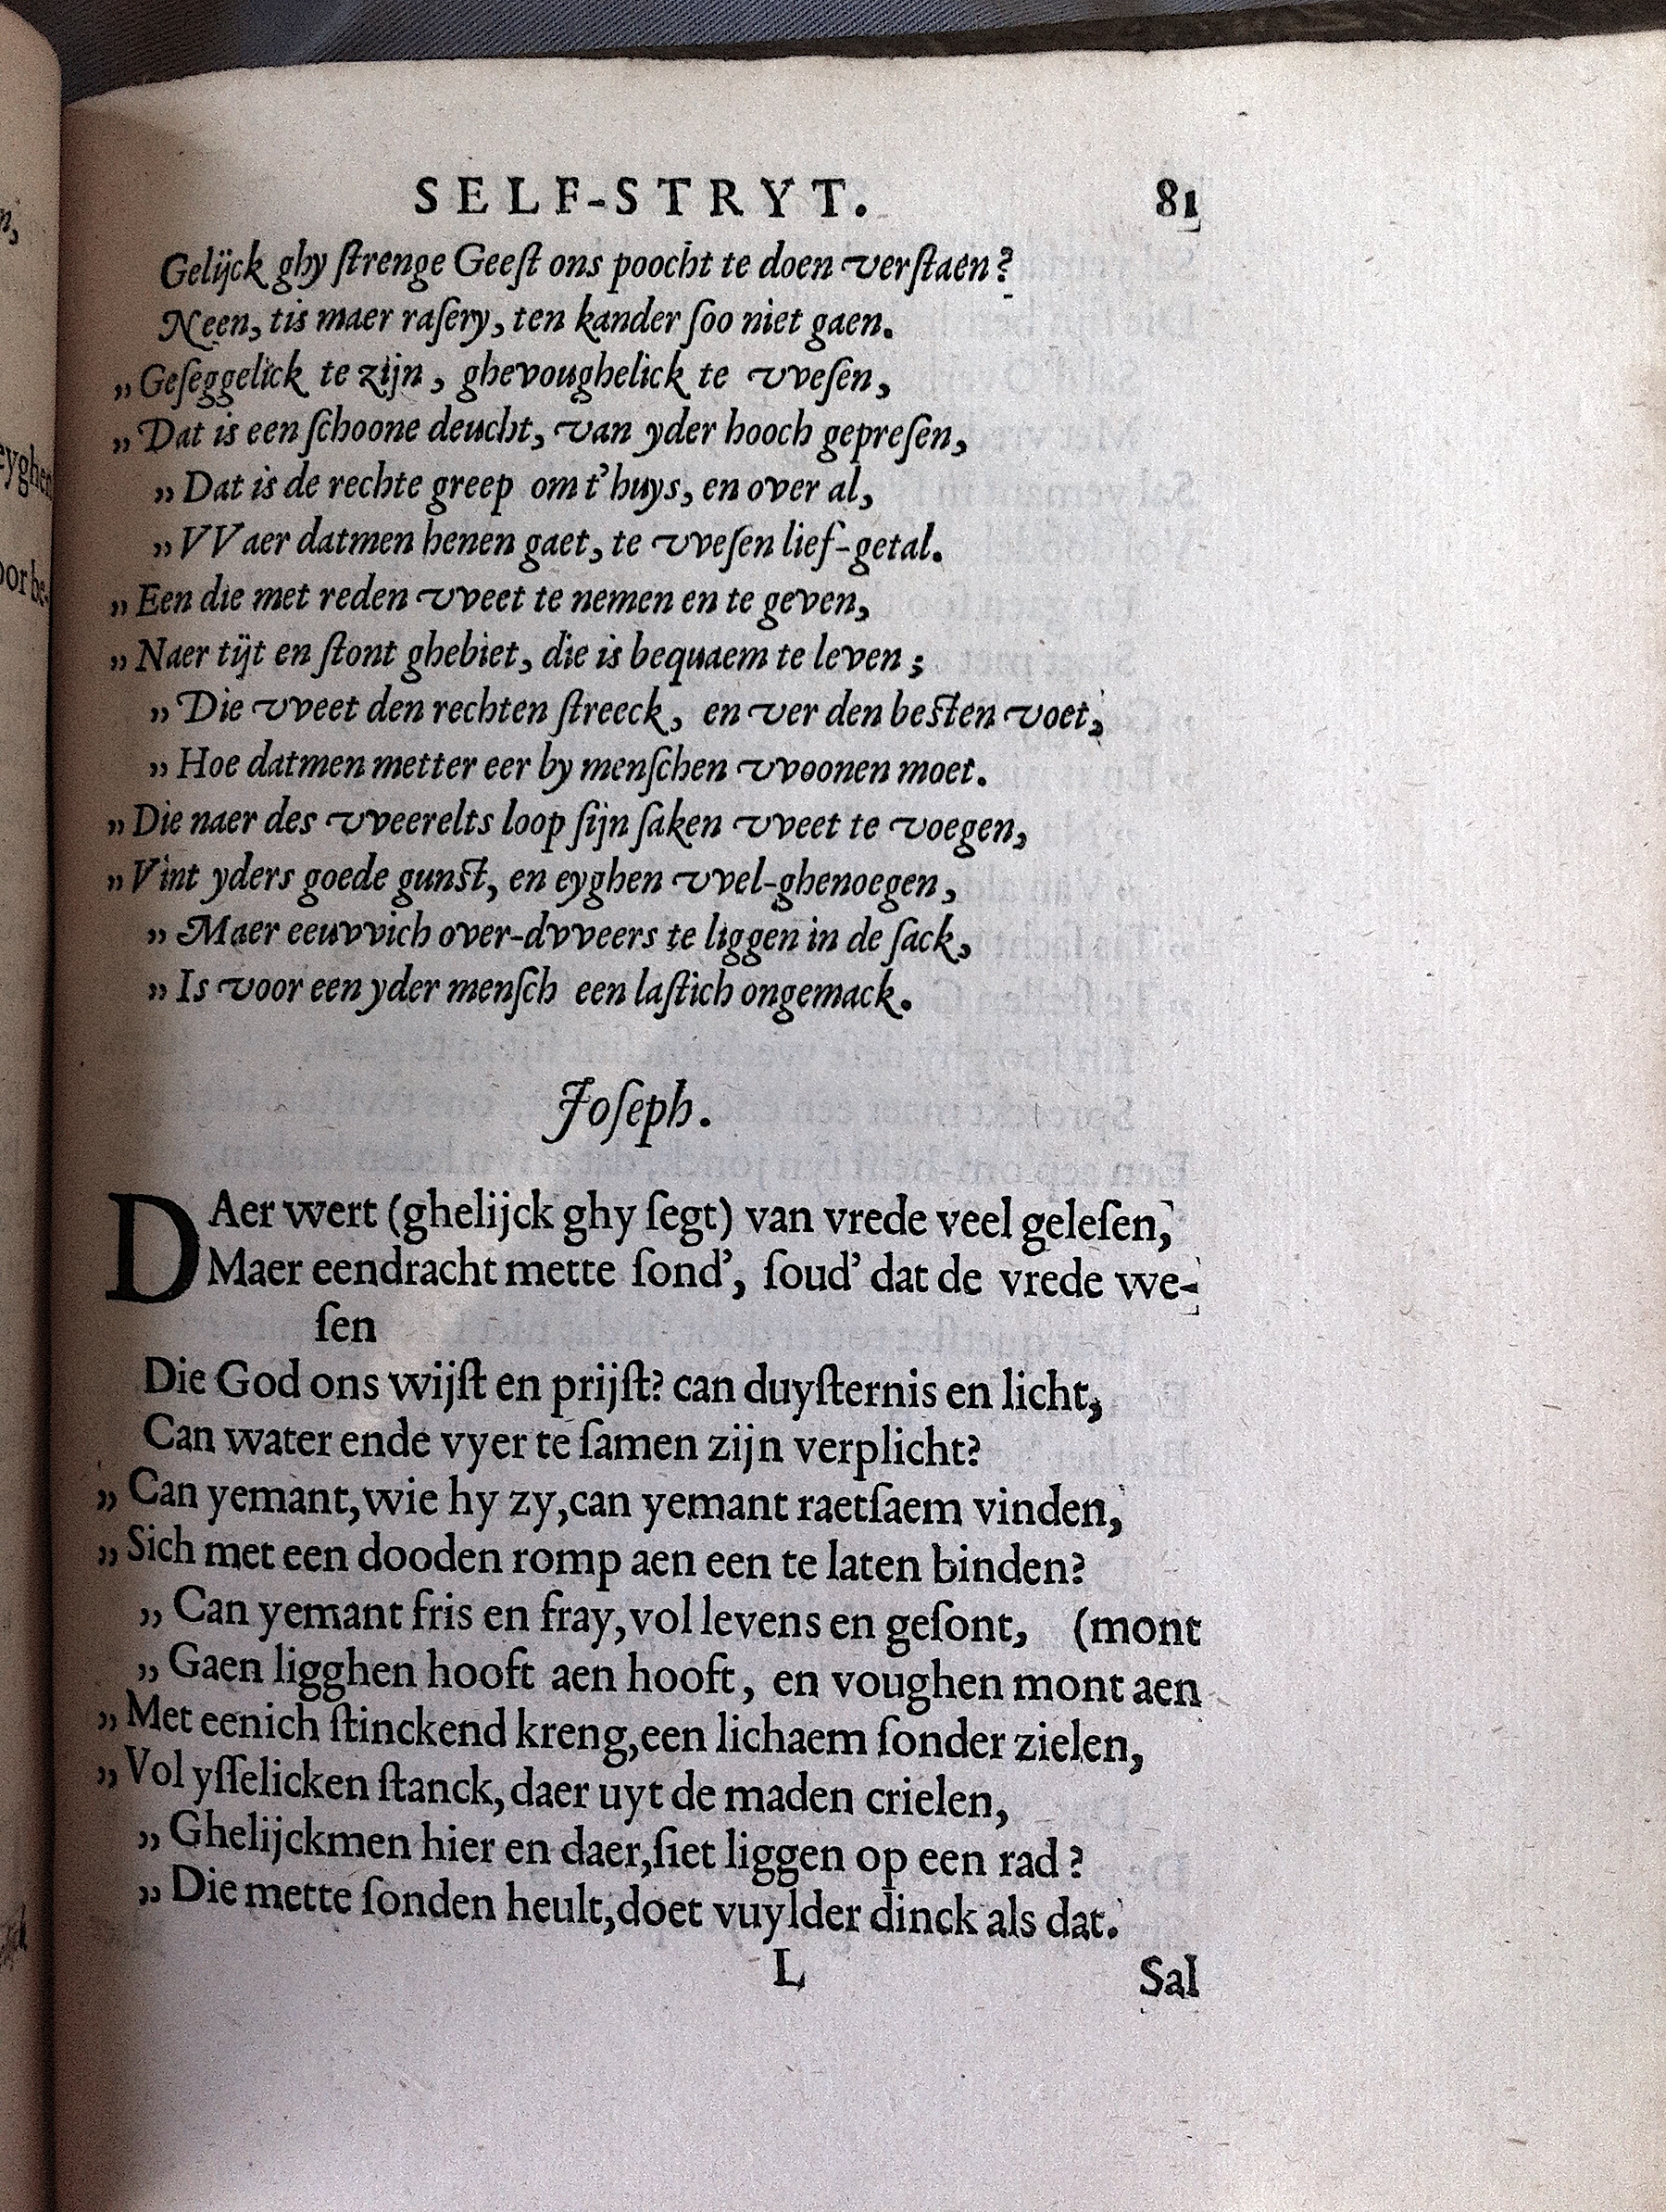 SELF-STRYT. 81
Gelijck ghy ſtrenge Geeſt ons poocht te doen verſtaen?
Neen, tis maer raſery, ten kander ſoo niet gaen.
„Geſeggelick te zijn, ghevoughelick te vveſen,
„Dat is een ſchoone deucht, van yder hooch gepreſen,
„Dat is de rechte greep om t'huys, en over al,
„VVaer datmen henen gaet, te vveſen lief-getal.
„Een die met reden vveet te nemen en te geven,
„Naer tijt en ſtont ghebiet, die is bequaem te leven;
„Die vveet den rechten ſtreeck, en ver den beſten voet,
„Hoe datmen metter eer by menſchen vvoonen moet.
„Die naer des vveerelts loop ſijn ſaken vveet te voegen,
„Vint yders goede gunſt, en eyghen vvel-ghenoegen,
„Maer eeuvvich over-dvveers te liggen in de ſack,
„Is voor een yder menſch een laſtich ongemack.
Joſeph.
DAer wert (ghelijck ghy ſegt) van vrede veel geleſen,
Maer eendracht mette ſond', ſoud' dat de vrede we-
ſen
Die God ons wijſt en prijſt? can duyſternis en licht,
Can water ende vyer te ſamen zijn verplicht?
„Can yemant, wie hy zy, can yemant raetſaem vinden,
„Sich met een dooden romp aen een te laten binden?
„Can yemant fris en fray, vol levens en geſont, (mont
„Gaen ligghen hooft aen hooft, en voughen mont aen
„Met eenich ſtinckend kreng, een lichaem ſonder zielen,
„Vol yſſelicken ſtanck, daer uyt de maden crielen,
„Ghelijckmen hier en daer, ſiet liggen op een rad?
„Die mette ſonden heult, doet vuylder dinck als dat.
L Sal